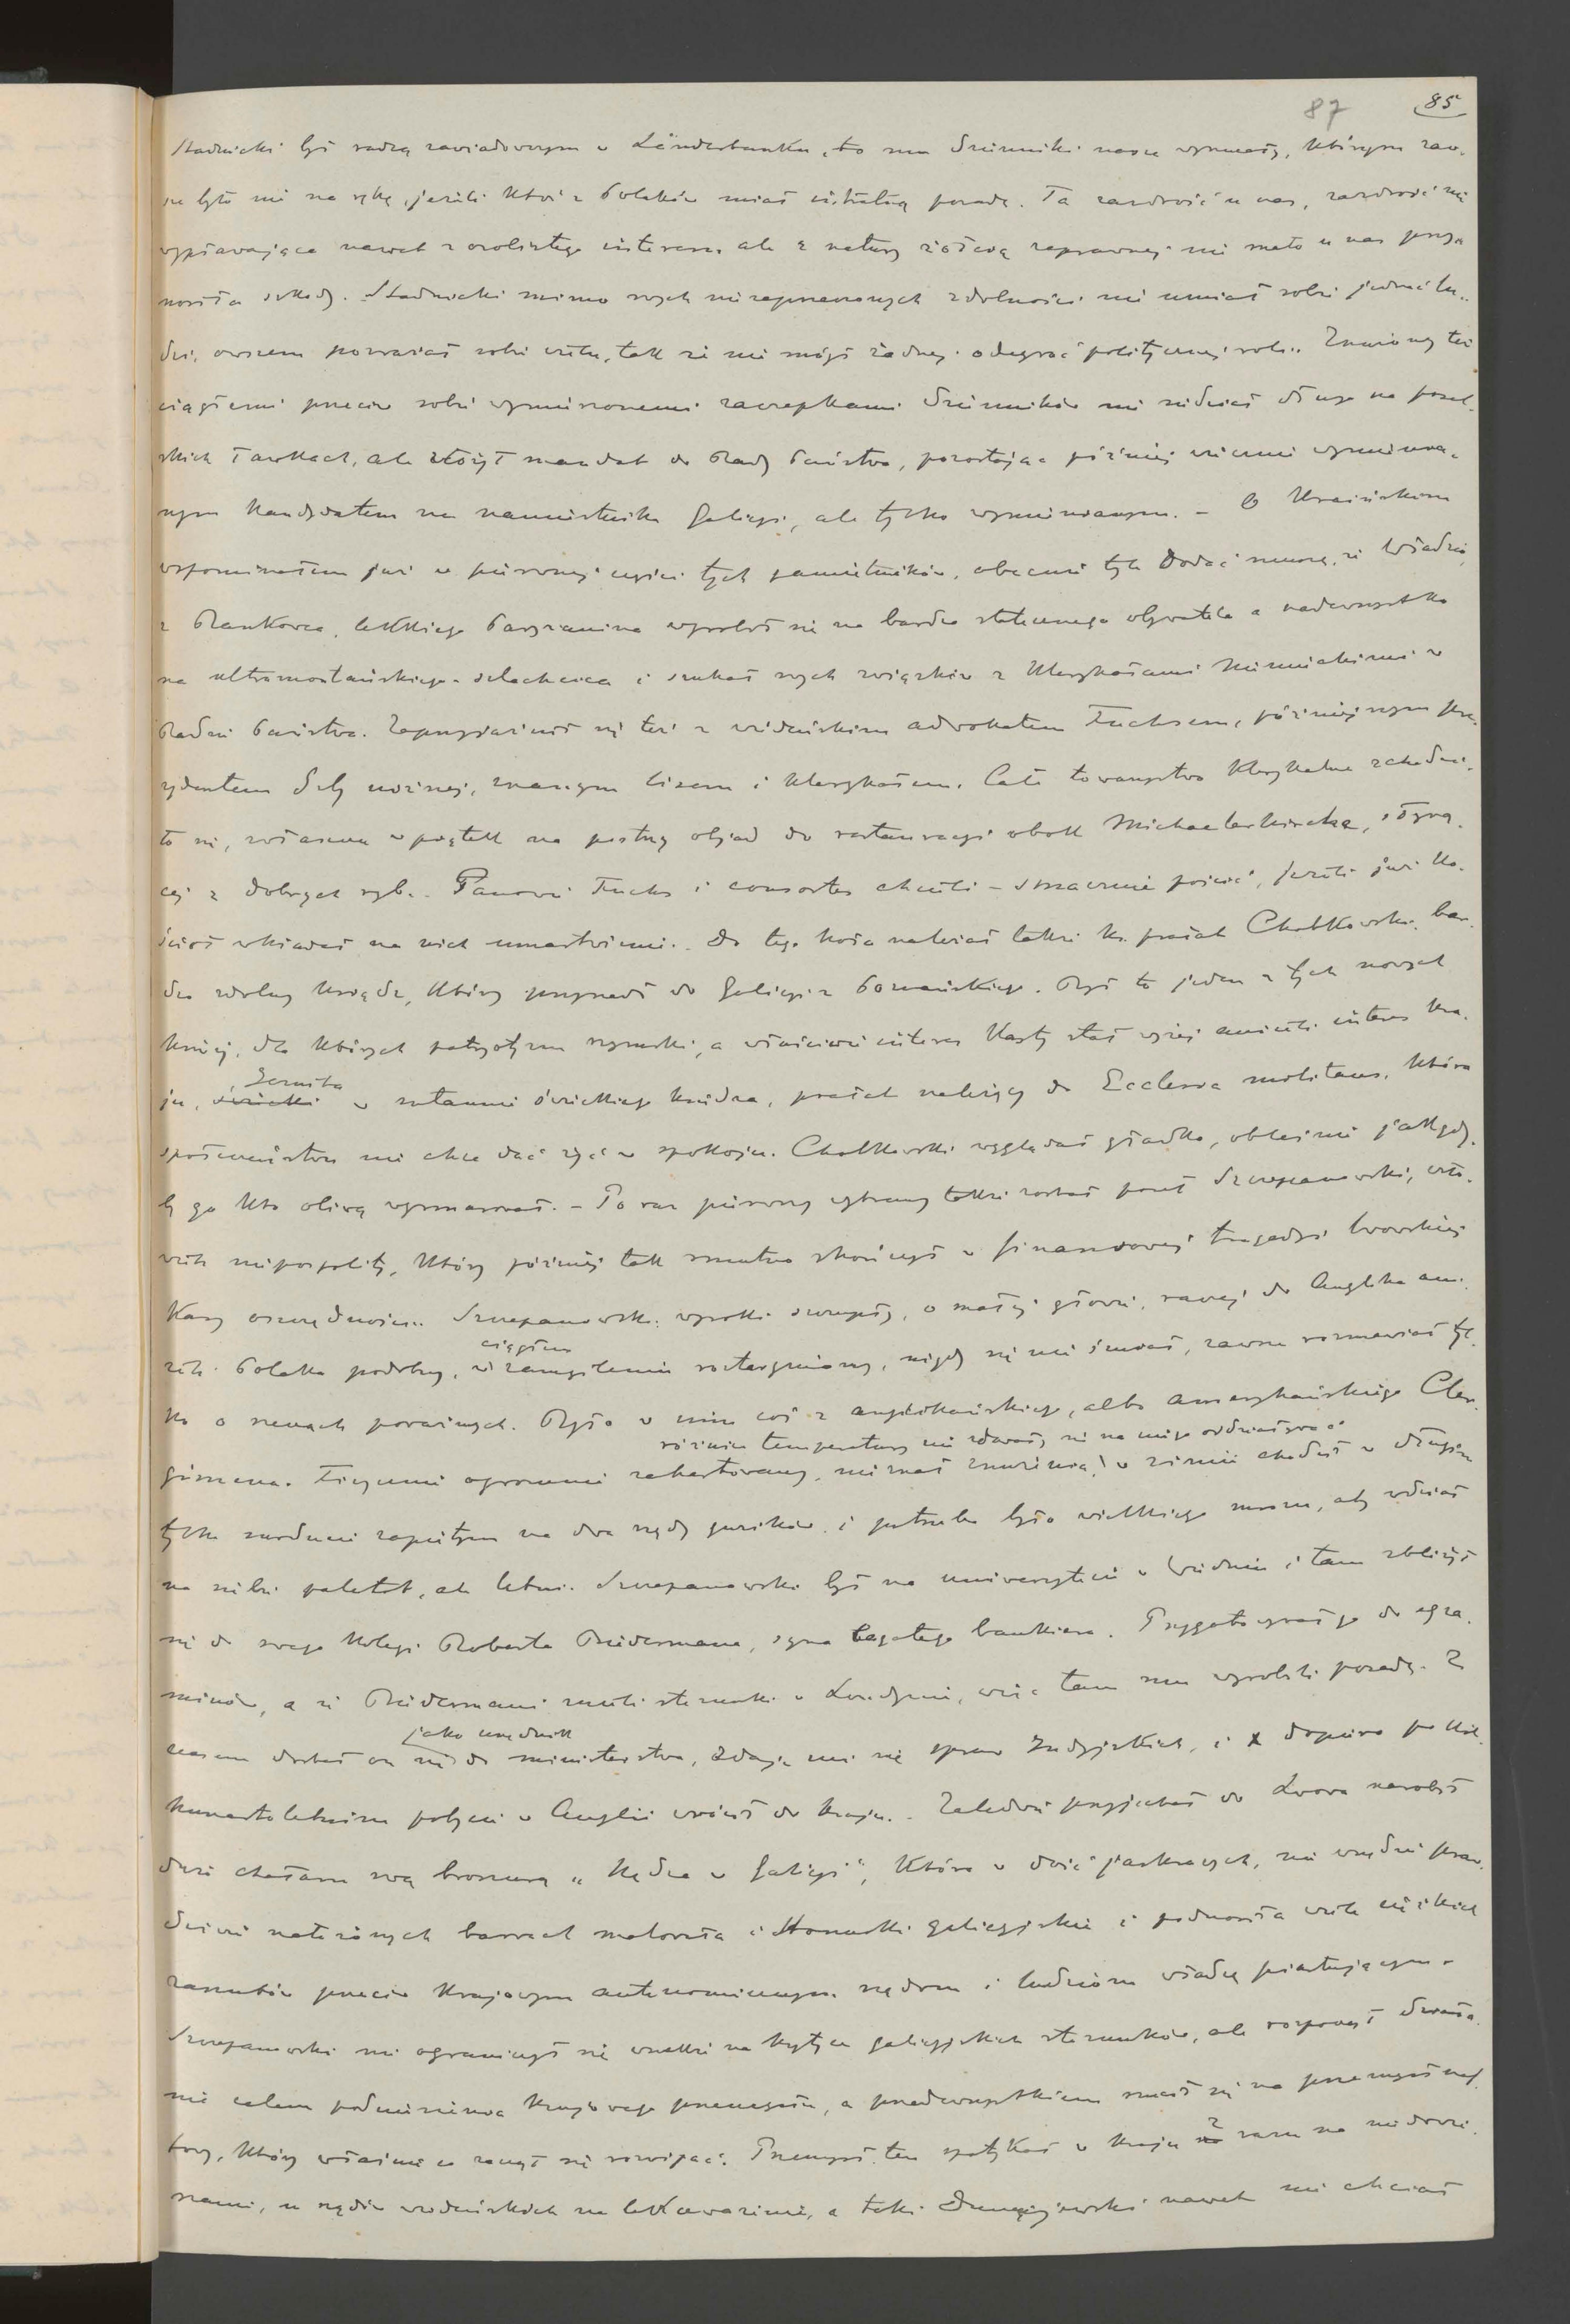 87 85
Stadnicki był radcą zawiadowczym w Länderbanku, to mu dzienniki nasze wymiatały, którym zaw-
sze było nie na rękę, jeżeli ktoś z Polaków miał intratną posadę. Ta zazdrość u nas, zazdrość nie
wypływająca nawet z osobistego interesu ale z natury żółcią zaprawnej nie mało u nas przy-
nosiła szkody. Stadnicki mimo swych niezaprzeczonych zdolności nie umiał sobie jednać lu-
dzi, owszem powaśnił sobie wielu, tak że nie mógł żadnej odegrać politycznej roli. Znużony też
ciągłemi przeciw sobie wymierzonemi zaczepkami dzienników nie siedział długo na posel-
skich ławkach, ale złożył mandat do Rady Państwa, pozostając później wiecznie wymienia-
nym kandydatem na namiestnika Galicyi, ale tylko wymienianym. – O Kraińskim
wspominałem już w pierwszej części tych pamiętników, obecnie tyle dodać muszę, że Władzio
z lekkiego Paryżanina wyrobił się na bardzo statecznego obywatela a nadewszystko
na ultramontańskiego szlachcica i szukał swych związków z klerykałami niemieckimi w
Radzie Państwa. Zaprzyjaźnił się też z wiedeńskim adwokatem Fuchsem, późniejszym pre-
zydentem Izby niższej, znanym lisem i klerykałem. Całe towarzystwo klerykalne schodzi-
ło się, zwłaszcza w piątek na postny objad do restauracyi obok Michaelerkirche, słyną-
cej z dobrych ryb. Panowie Fuchs i consortes chcieli – smacznie pościć, jeżeli już Ko-
ściół wkładał na nich umartwienie. Do tego koła należał także ks. prałat Chotkowski, bar-
dzo zdolny ksiądz, który przyszedł do Galicyi z Poznańskiego. Był to jeden z tych nowych
księży, dla których patryotyzm rzymski, a właściwie interes kasty stał wyżej aniżeli interes kra-
ju, Jezuita w sutannie świeckiego księdza, prałat należący do Ecclesia militans, która
społeczeństwu nie chce dać żyć w spokoju. Chotkowski wyglądał gładko, obleśnie jakgdy-
by go kto oliwą wysmarował. – Po raz pierwszy wybrany także został poseł Szczepanowski, czło-
wiek niepospolity, który później tak smutno skończył w finansowej tragedyi lwowskiej
Kasy oszczędności. Szczepanowski wysoki szczupły, o małej głowie, raczej do Anglika ani-
żeli Polaka podobny, ciągłem zamyśleniu roztargniony, nigdy się nie śmiał, zawsze rozmawiał tyl-
ko o rzeczach poważnych. Było w nim coś z anglikańskiego, albo amerykańskiego Cler-
gimena. Fizycznie ogromnie zahartowany, nie znał znużenia, różnice temperatury nie zdawały się na niego oddziaływać w zimie chodził w długim
tylko surducie zapiętym na dwa rzędy guzików i potrzeba było wielkiego mrozu, aby wdział
na siebie paletot, ale letni. Szczepanowski był na uniwersytecie w Wiedniu i tam zbliżył
się do swego kolegi Roberta Biedermana, syna bogatego bankiera. Przygotowywał go do egza-
minów, a że Biedermani mieli stosunki w Londynie, więc tam mu wyrobili posadę. Z
czasem dostał on się jako urzędnik do ministerstwa, zdaje mi się spraw Indyjskich, i dopiero po kil-
kunastoletnim pobycie w Anglii wrócił do kraju. – Zaledwie przyjechał do Lwowa narobił
dużo hałasu swą broszurą „Nędza w Galicyi", która w dość jaskrawych, nie wszędzie praw-
dziwie nałożonych barwach malowała stosunki galicyjskie i podnosiła wiele ciężkich
zarzutów przeciw krajowym autonomicznym rządom i ludziom władzę piastującym.
Szczepanowski nie ograniczył się wszakże na krytyce galicyjskich stosunków, ale rozpoczął działa-
nie celem podniesienia krajowego przemysłu, a przedewszystkiem rzucił się na przemysł naf-
towy, który właśnie co zaczął się rozwijać. Przemysł ten spotykał w kraju z razu na niedowie-
rzanie, u rządów wiedeńskich na lekceważenie, a taki Dunajewski nawet nie chciał